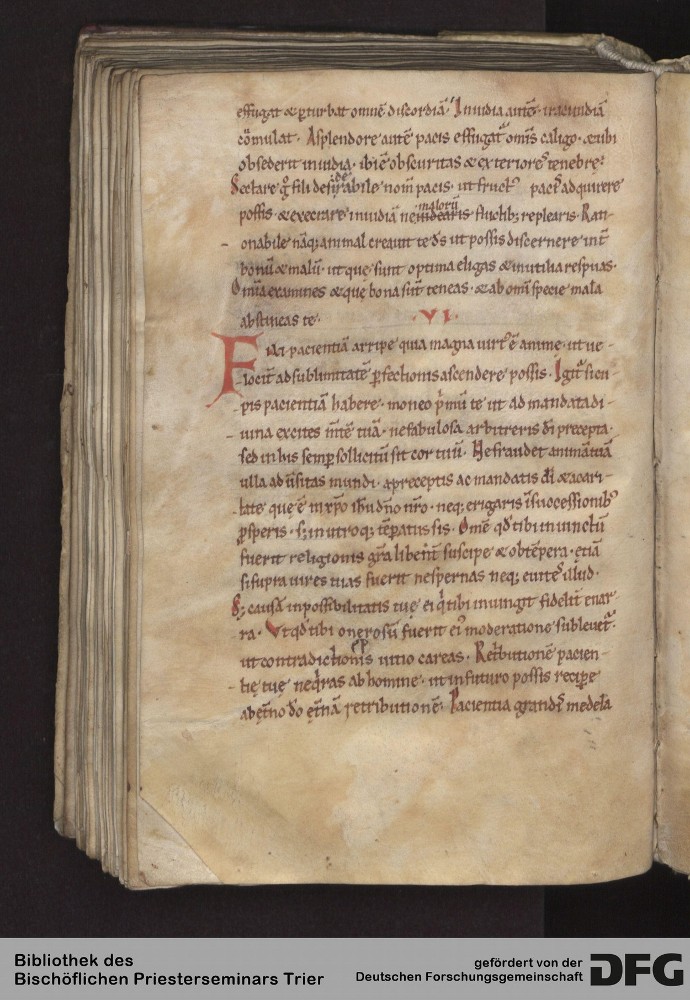 effugat & ꝑturbat omnē discordiā. Inuidia autē iracundiā
cōmulat. Asplendore autē pacis effugat᷑ omīs caligo. & ubi
obsederit inuidia. ibi ē obscuritas & exteriores tenebre.
Sectare g̊ fili desiderabile nom̄ pacis. ut fructꝰ pacis adquirere
possis. & execrare inuidiā ne malorū fructib; replearis. Rati-
onabile nāq; animal creauit te d̄s ut possis discernere int̄
bonū & malū. ut que sunt optima eligas & inutilia respuas.
Omīa examines & que bona sunt teneas. & ab omī specie mala
abstineas te.
.VI.
Fili pacientiā arripe quia magna uirtꝰ ē anime. ut ue-
locit̄ ad sublimitatē ꝑfectionis ascendere possis. Igit᷑ si cu-
pis pacientiā habere. moneo p̄mū te ut ad mandata di-
uina excites m̄te tuā. ne fabulosa arbitreris dī precepta.
sed in his semꝑ sollicitū sit cor tuū. Ne fraudet animā tuā
ulla aduersitas mundi. apreceptis ac mandatis dī & a cari-
tate que ē in xp̄o ih̄u dn̄o nr̄o. neq; erigaris ī successionibꝰ
ꝓsperis. s; in utroq; tēꝑatus sis. Omē qd tibi iniunctū
fuerit religionis grā libent̄ suscipe & obtēpera. etiā
si supra uires tuas fuerit ne spernas neq; euites illud.
S; causā inpossibilitatis tuę ei q̇ tibi iniungit fidelit̄ enar-
ra. Vt qd tibi onerosū fuerit eiꝰ moderatione subleuet᷑.
ut contradictionis uitio careas. Retbutionē pacien-
tię tuę ne q̄ras ab homine. ut in futuro possis recipe
ab et̄no do et̄nā retributionē. Pacientia grandis medela
Bibliothek des
Bischöflichen Priesterseminars Trier
gefördert von der
Deutschen Forschungsgemeinschaft
DFG